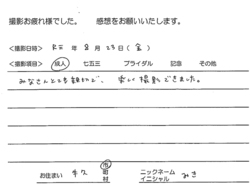 撮影お疲れ様でした。 感想をお願いいたします。
＜撮影日時＞ R元 年 8 月 23 日 ( 金 )
＜撮影項目＞ 成人 七五三 ブライダル 記念 その他
みなさんとても親切で、楽しく撮影できました。
市
お住まい 牛久 町 ニックネーム みき
村 イニシャル